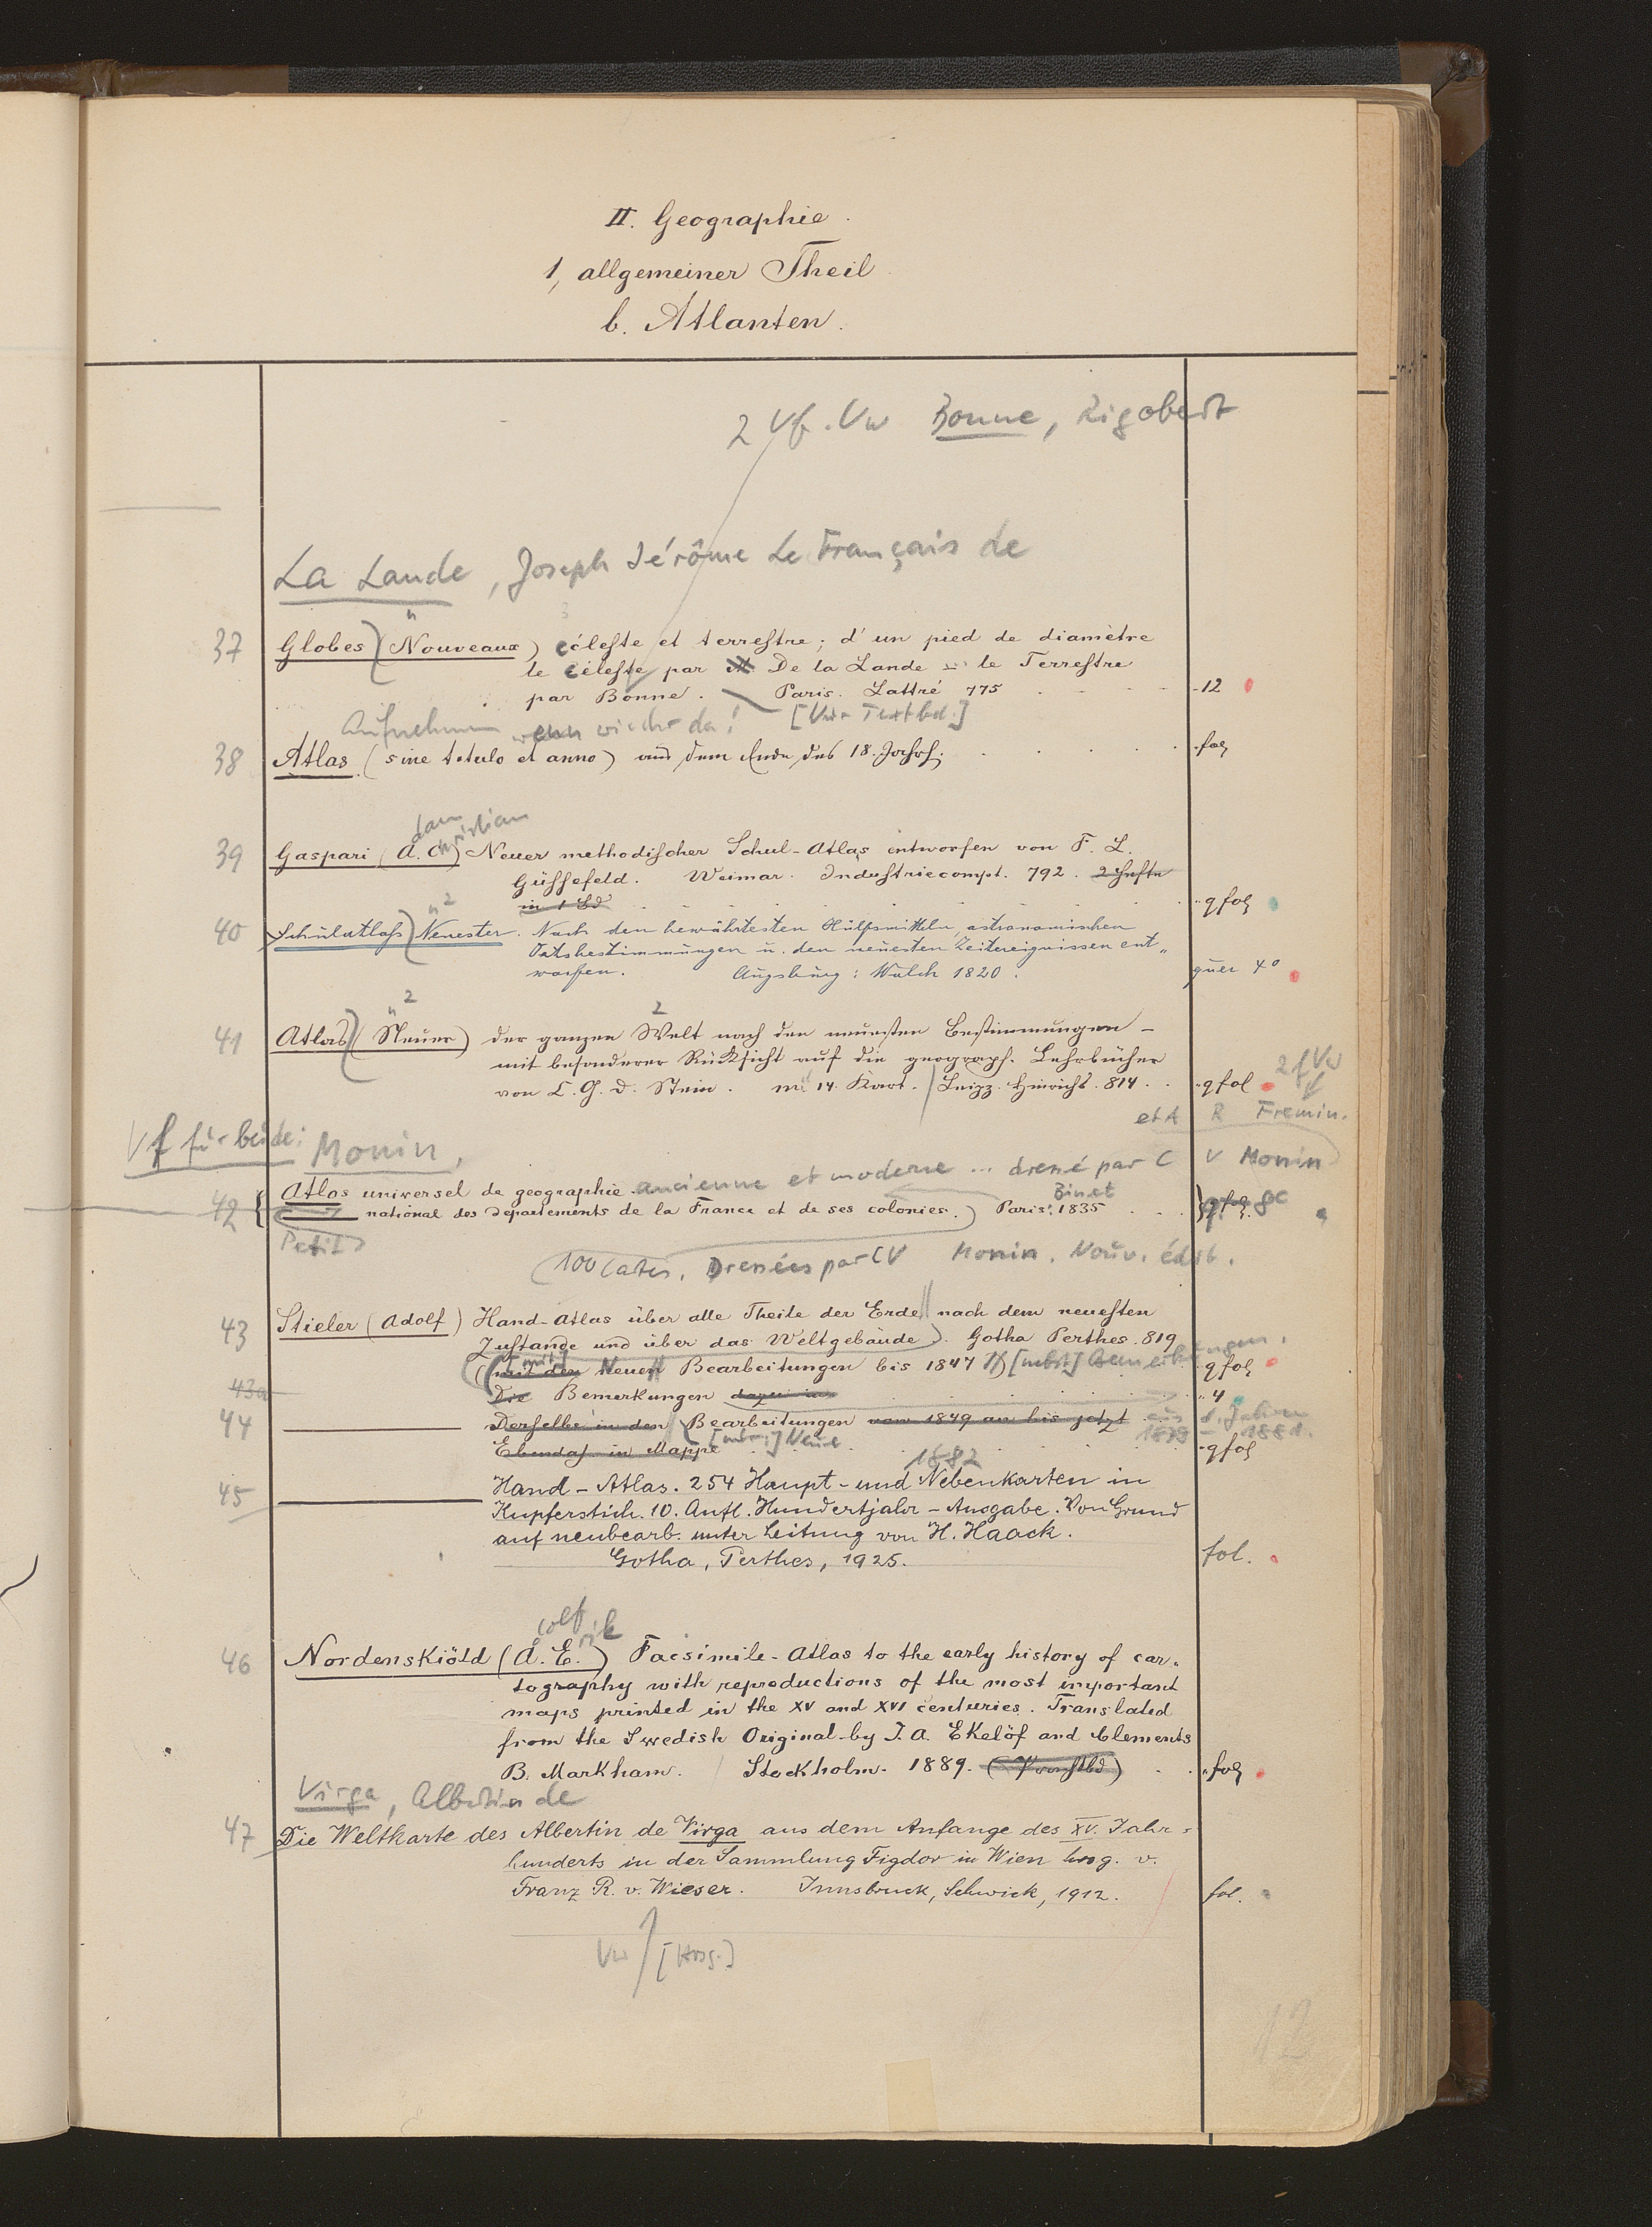 II. Geographie.
1, allgemeiner Theil
b. Atlanten.
2 Vf. Vw Bonne, Rigobert
La Lande, Joseph Jérôme Le Français de
37 Globes (Nouveaux) céleste et terrestre; d'un pied de diamètre
le Céleste par M De la Lande le Terrestre
par Bonne. Paris. Lattré 775 12
Aufnehmen wenn wieder da! [Vw Textbd.]
38 Atlas (sine titulo et anno) aus dem Ende des 18. Jahrh. fol
dam hristian
39 Gaspari (A. C.) Neuer methodischer Schul-Atlas entworfen von F. L.
Güssefeld. Weimar. Industriecompt. 792. 2 Hefte
in 1 Bd qfol
40 Schulatlass (Neuester. Nach den bewährtesten Hülfsmitteln, astronomischen
Ortsbestimmungen u. den neuesten Zeitereignissen ent„
worfen. Augsburg: Walch 1820. quer 4°
41 Atlas (Neuer) der ganzen Welt nach den neuesten Bestimmungen –
mit besonderer Rücksicht auf die geograph. Lehrbücher
von C. G. D. Stein. mi 14 Kart. Leipz. Hinrichs. 814. qfol 2 f Vw
et A R Fremin.
Vf für beide: Monin,
ancienne et moderne ... dressé par C V Monin
42 Atlas universel de geographie.
national des departements de la France et de ses colonies.) Paris. Binet 1835 qfol. 8°
Petit
100 Cartes. Dressées par CV Monin. Nouv. édit.
43 Stieler (Adolf) Hand-Atlas über alle Theile der Erde nach dem neuesten
Zustande und über das Weltgebäude). Gotha Perthes. 819
(mit den [mit] Neuen Bearbeitungen bis 1847 [nebst] Bemerkungen. qfol
43a Die Bemerkungen dazu in 4
44 Derselbe in den Bearbeitungen von 1849 an bis jetzt aus d. Jahren
1879 – 1881.
Ebendas in Mappe [nebst] Neue qfol
1882
45 Hand-Atlas. 254 Haupt- und Nebenkarten in
Kupferstich. 10. Aufl. Hundertjahr-Ausgabe. Von Grund
auf neubearb. unter Leitung von H. Haack.
Gotha, Perthes, 1925. fol.
dolf rik
46 Nordenskiöld (A. E.) Facsimile-Atlas to the early history of car„
tography with reproductions of the most important
maps printed in the XV and XVI centuries. Translated
from the Swedish Original by J. A. Ekelöf and Clements
B. Markham. Stockholm. 1889. fol
Virga, Albertin de
47 Die Weltkarte des Albertin de Virga aus dem Anfange des XV. Jahr=
hunderts in der Sammlung Figdor in Wien hrsg. v.
Franz R. v. Wieser. Innsbruck, Schwick, 1912. fol.
Vw [Hrsg.]
12